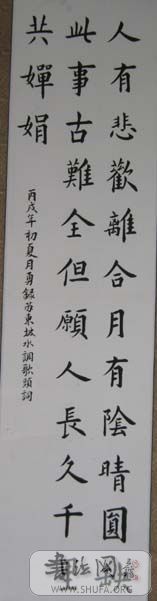 人有悲歡離合月有陰晴圓
此事古難全但願人長久千
共嬋娟
丙戌年初夏月勇錄苏東坡水調歌頭詞
WWW.SHUFA.ORG